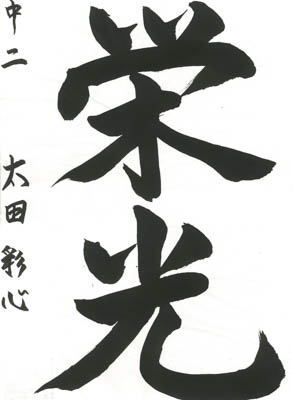 栄光
中二 太田彩心